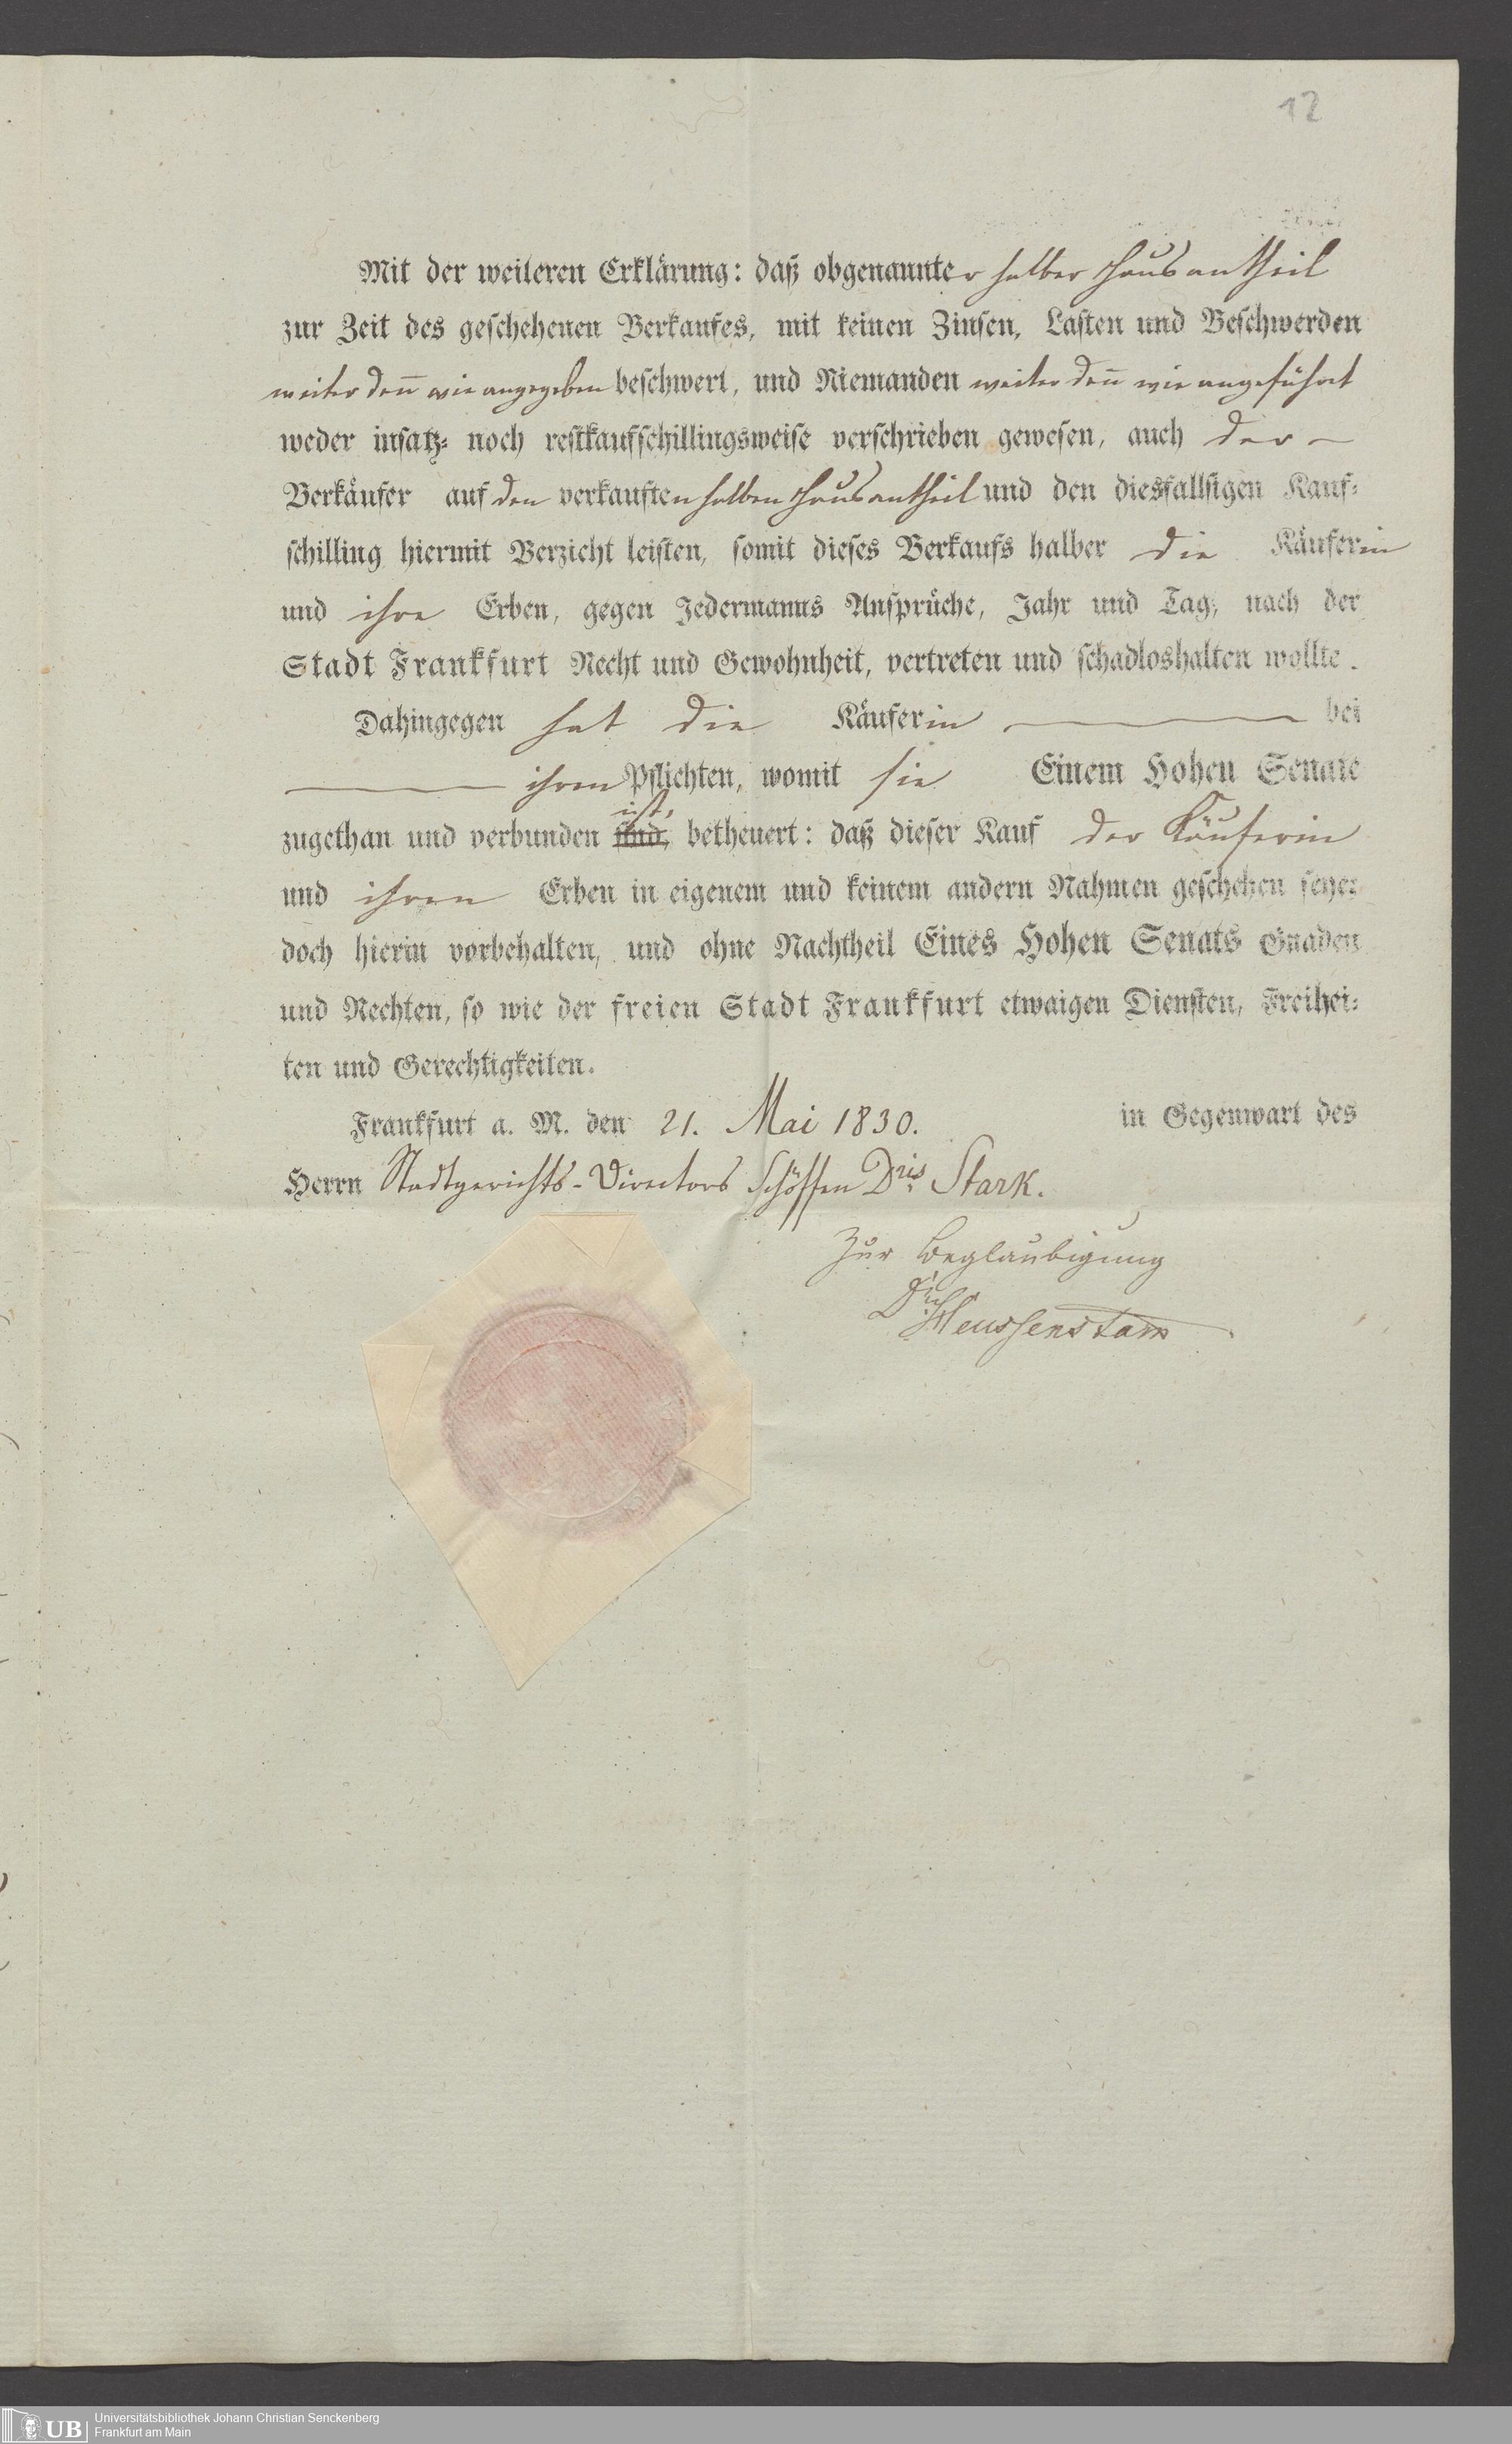 12
Mit der weiteren Erklärung: daß obgenannter halber Hausantheil
zur Zeit des geschehenen Verkaufes, mit keinen Zinsen, Lasten und Beschwerden
weiter deñ wie angegeben beschwert, und Niemanden weiter deñ wie angeführt
weder insatz- noch restkaufschillingsweise verschrieben gewesen, auch der –
Verkäufer auf den verkauften halben Hausantheil und den diesfallsigen Kauf-
schilling hiermit Verzicht leisten, somit dieses Verkaufs halber die Käuferin
und ihre Erben, gegen Jedermanns Ansprüche, Jahr und Tag, nach der
Stadt Frankfurt Recht und Gewohnheit, vertreten und schadloshalten wollte.
Dahingegen hat die Käuferin — bei
— ihren Pflichten, womit sie Einem Hohen Senate
ist,
zugethan und verbunden sind, betheuert: daß dieser Kauf der Käuferin
und ihren Erben in eigenem und keinem andern Nahmen geschehen seye:
doch hierin vorbehalten, und ohne Nachtheil Eines Hohen Senats Gnaden
und Rechten, so wie der freien Stadt Frankfurt etwaigen Diensten, Freihei-
ten und Gerechtigkeiten.
Frankfurt a. M. den 21. Mai 1830. in Gegenwart des
Herrn Stadtgerichts-Directors Schöffen Dris Stark.
Zur Beglaubigung
Heussenstam
UB Universitätsbibliothek Johann Christian Senckenberg
Frankfurt am Main